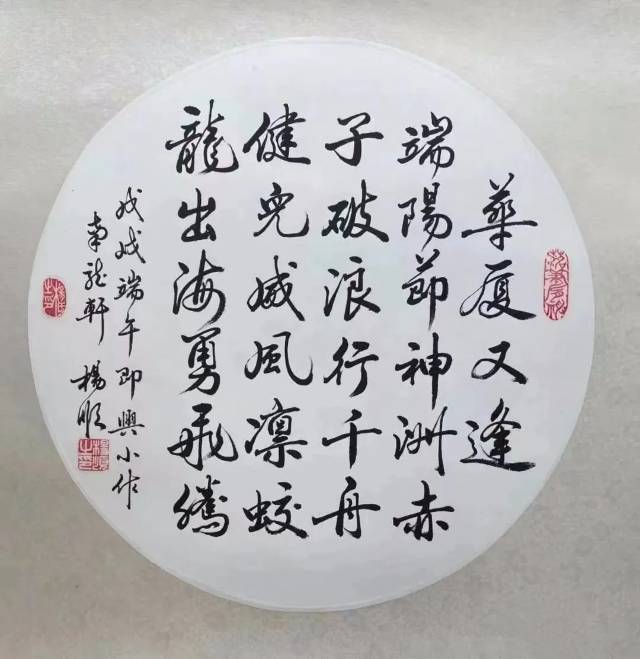 華厦又逢
端陽節神洲赤
子破浪行千舟
健兒威風凛蛟
龍出海勇飛騰
戊戌端午即興小作
南龙軒 楊順